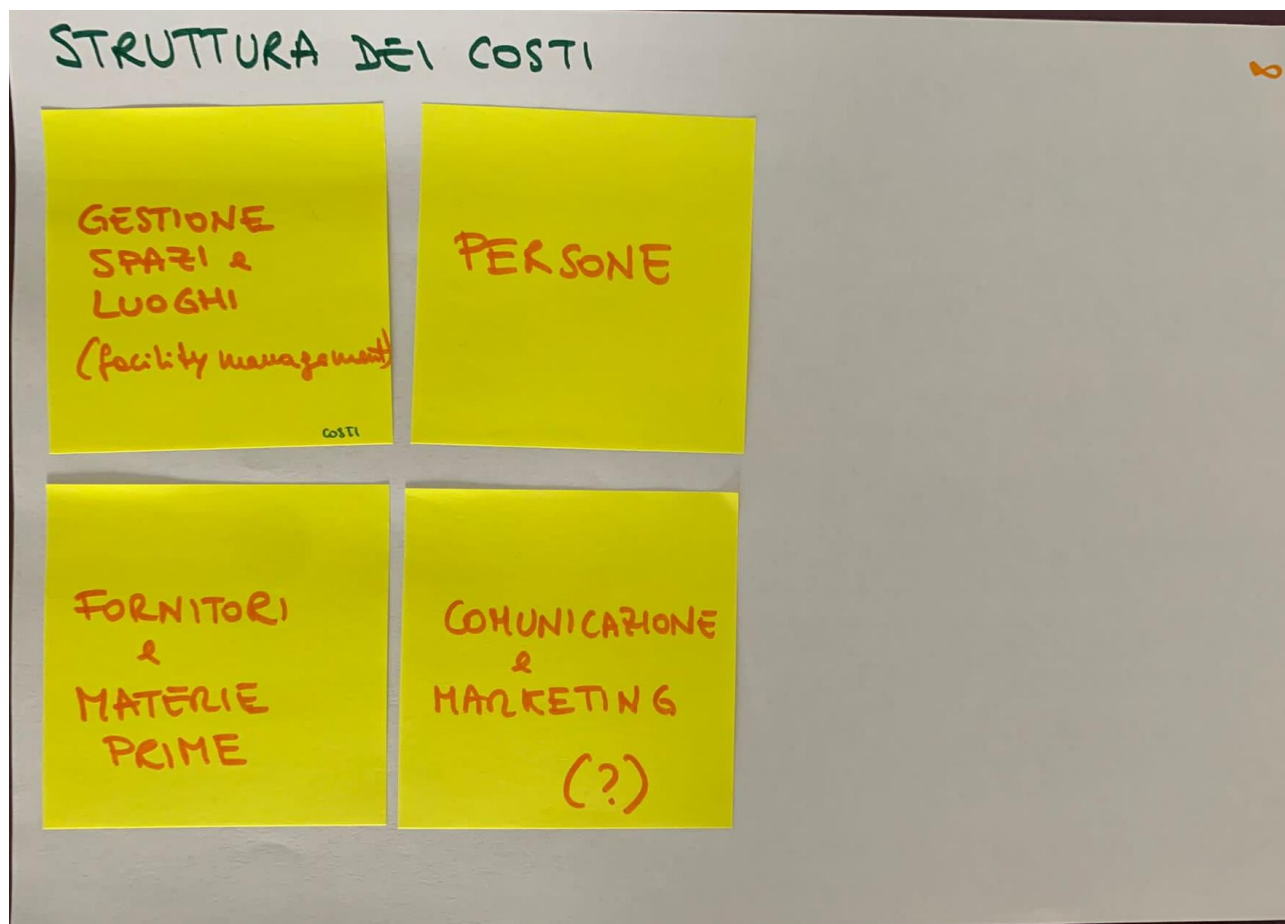 STRUTTURA DEI COSTI
8
GESTIONE
SPAZI e
LUOGHI
(facility management)
COSTI
PERSONE
FORNITORI
e
MATERIE
PRIME
COMUNICAZIONE
e
MARKETING
(?)